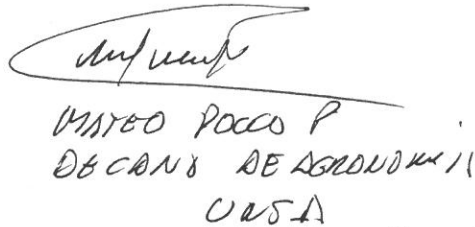 MATEO POCCO P
DECANO DE AGRONOMIA
UNSA